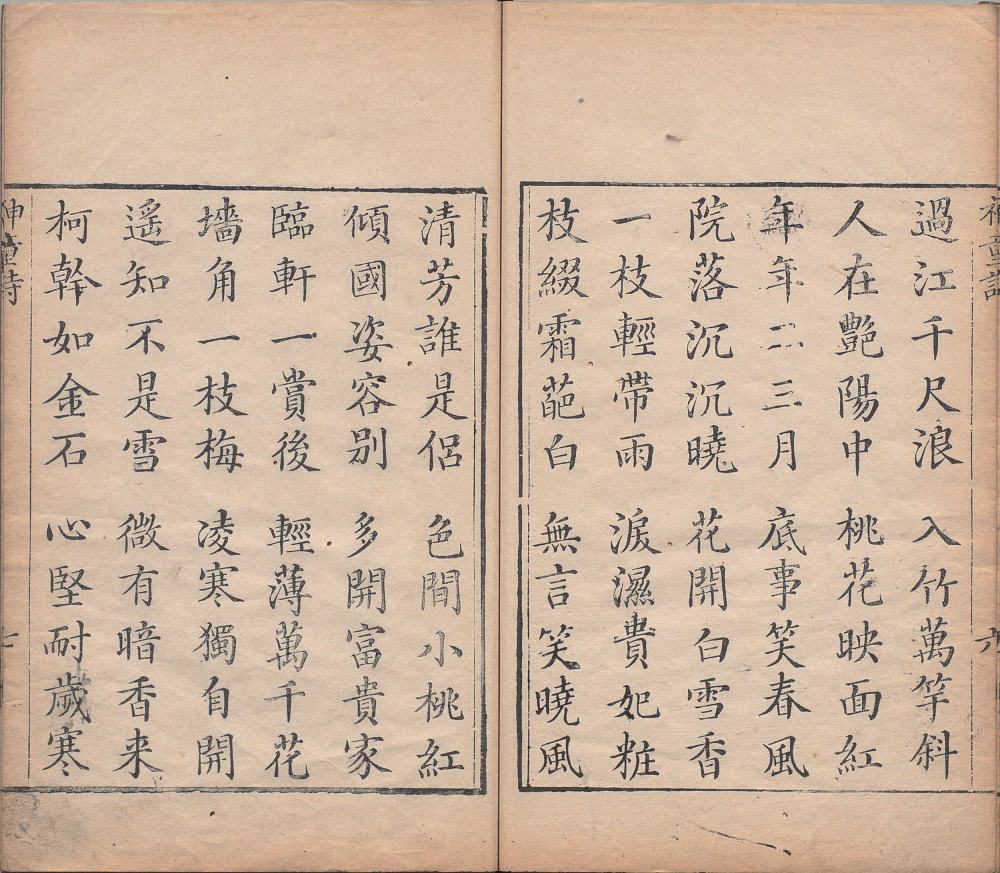 過江千尺浪 入竹萬竿斜
人在艷陽中 桃花映面紅
年年二三月 底事笑春風
院落沉沉曉 花開白雪香
一枝輕帶雨 淚濕貴妃粧
枝綴霜葩白 無言笑曉風
清芳誰是侶 色間小桃紅
傾國姿容別 多開富貴家
臨軒一賞後 輕薄萬千花
墻角一枝梅 凌寒獨自開
遙知不是雪 微有暗香来
柯幹如金石 心堅耐歲寒
神童詩
七